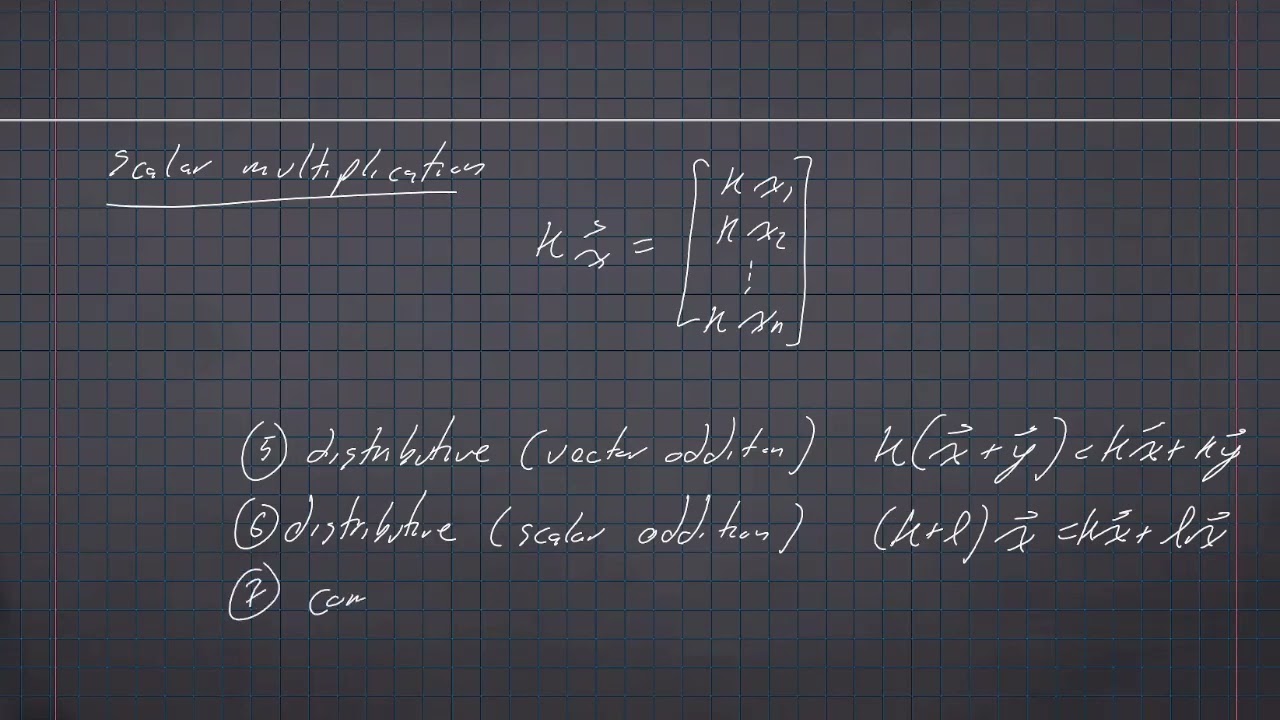 scalar multiplication
k x⃗ = [ k x₁
k x₂
⋮
k xₙ ]
⑤ distributive (vector additon) k(x⃗ + y⃗) = kx⃗ + ky⃗
⑥ distributive (scalar addition) (k+l) x⃗ = kx⃗ + lx⃗
⑦ com